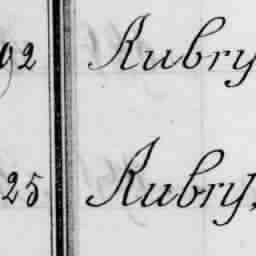 92 Aubry
25 Aubry,